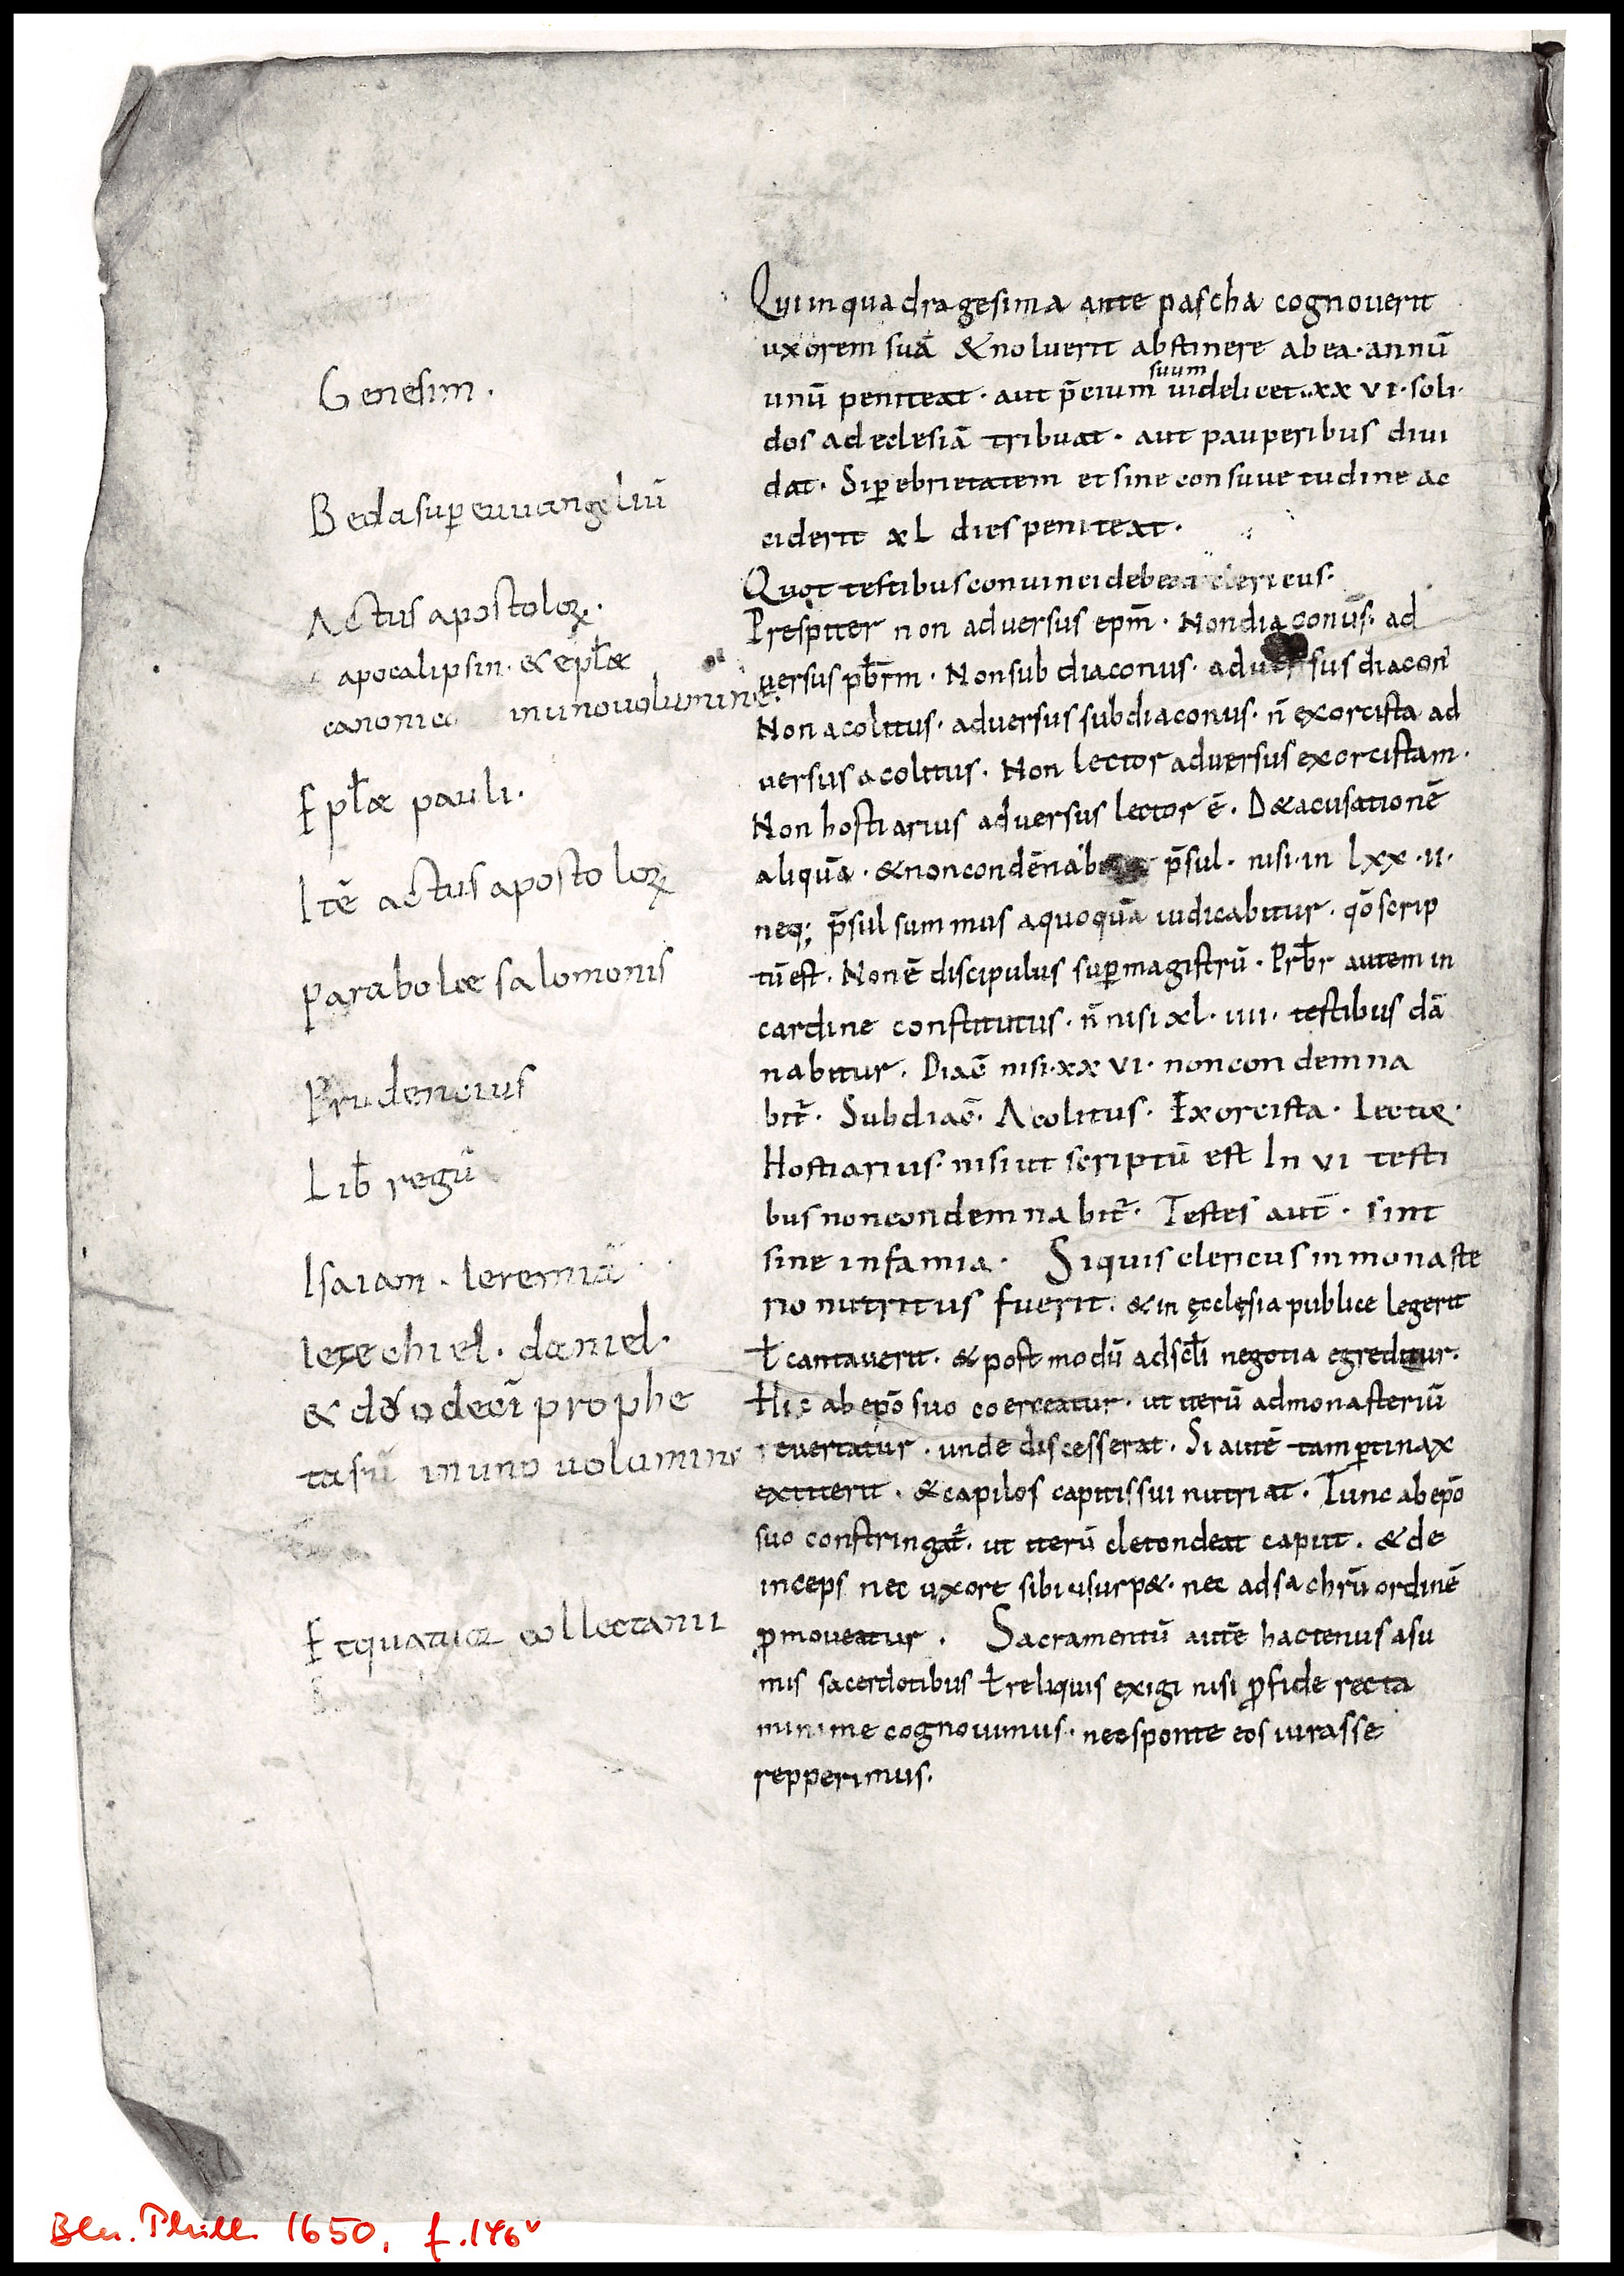 Genesim.
Beda sup̄ euuangeliū
Actus apostoloꝝ.
apocalipsin. & ep̄læ
canonicę in uno uolumine.
Ep̄læ pauli.
Itē actus apostoloꝝ
parabolæ salomonis
Prudencius
Lib̄ regū
Isaiam. Ieremiā
Iezechiel. daniel.
& duodecī prophe
tarū in uno uolumine
Et quatuor collectanii
Qui in quadragesima ante pascha cognouerit
uxorem suā & noluerit abstinere ab ea. annū
unū peniteat. aut p̄cium suum uidelicet. xx vi. soli
dos ad eclesiā tribuat. aut pauperibus diui
dat. Si ꝑ ebrietatem et sine consuuetudine ac
ciderit xl dies peniteat.
Quot testibus conuinci debeat clericus.
Prespiter non adversus ep̄m. Non diaconus. ad
uersus pb̄rm. Non subdiaconus. aduersus diacon̄
Non acolitus. adversus subdiaconus. n̄ exorcista ad
uersus acolitus. Non lector adversus exorcistam.
Non hostiarius adversus lectorē. D& acusationē
aliquā. & non condēnab p̄sul. nisi. in lxx. ii.
neq; p̄sul summus a quoquā iudicabitur. qō scrip
tū est. Non ē discipulus suꝑ magistrū. Prb̄r autem in
cardine constitutus. n̄ nisi xl. iiii. testibus dā
nabitur. Diac̄ nisi. xx vi. non condemna
bit̄. Subdiac̄. Acolitus. Exorcista. Lector.
Hostiarius. nisi ut scriptū est In vi testi
bus non condemnabit̄. Testes aut̄. sint
sine infamia. Si quis clericus in monaste
rio nutritus fuerit. & in ęcclęsia publice legerit
ł cantaverit. & postmodū ad scłi negotia egreditur.
Hic ab ep̄o suo coerceatur. ut iterū ad monasteriū
revertatur. unde discesserat. Si autē tam ꝑtinax
extiterit. & capilos capitis sui nutriat. Tunc ab ep̄o
suo constringat̄. ut iterū detondeat caput. & de
inceps nec uxore sibi usurp&. nec ad sachrū ordinē
ꝓmoveatur. Sacramentū autē hactenus a su
mis sacerdotibus ł reliquis exigi nisi ꝓ fide recta
minime cognouimus. nec sponte eos iurasse
repperimus.
Bln. Phill. 1650, f. 146v